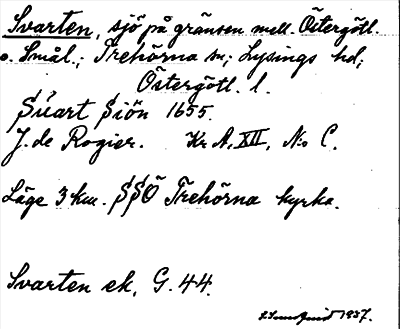 Svarten, sjö på gränsen mell. Östergötl.
o. Smål.; Trehörna sn; Lysings hd;
Östergötl. l.
Suart Siön 1655.
J. de Rogier. Kr A, XII, No C.
Läge 3 km. SSÖ Trehörna kyrka.
Svarten ek, G. 44.
1937.